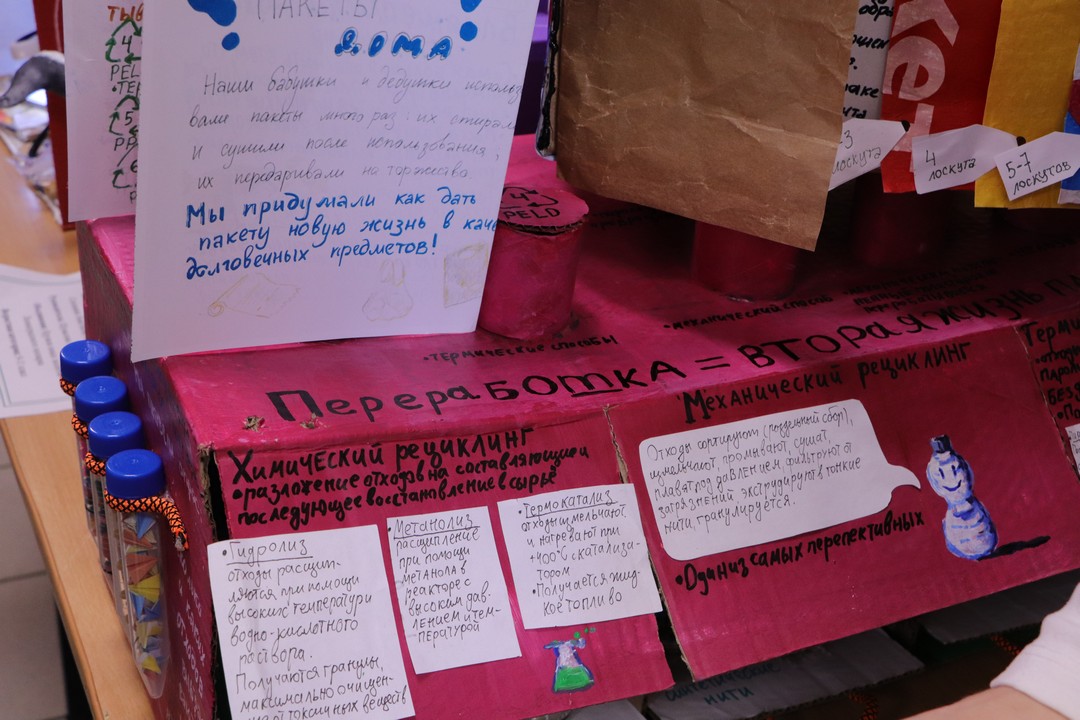 ПАКЕТЫ
ДОМА
Наши бабушки и дедушки использо
вали пакеты много раз: их стирали
и сушили после использования,
их передаривали на торжества.
Мы придумали как дать
пакету новую жизнь в каче
долговечных предметов!
4
PELD
5
PP
6
4
PELD
кет
3
лоскута
4
лоскута
5-7
лоскутов
•ТЕРМИЧЕСКИЕ СПОСОБЫ
•МЕХАНИЧЕСКИЙ СПОСОБ
ПерерабОТКА = ВТОРАЯ ЖИЗНЬ
Химический рециклинг
•разложение отходов на составляющие и
последующее восстановление в сырье
•Гидролиз
отходы расщеп-
ляются при помощи
высоких температур и
водно-кислотного
раствора.
Получаются гранулы,
максимально очищен-
от токсичных веществ
•Метанолиз
расщипление
при помощи
метанола в
реакторе с
высоким дав-
лением и тем-
пературой
•Термокатализ
отходы измельчают
и нагревают при
+400°С с катализа-
тором
•Получается жид-
кое топливо
Механический рециклинг
Отходы сортируют (раздельный сбор),
измельчают, промывают, сушат,
плавят под давлением, фильтруют от
загрязнений, экструдируют в тонкие
нити, гранулируется.
•Один из самых перспективных
нити